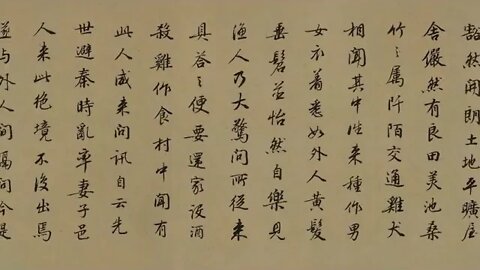 豁然開朗土地平曠屋
舍儼然有良田美池桑
竹之屬阡陌交通雞犬
相聞其中往来種作男
女衣着悉如外人黄髮
垂髫並怡然自樂見
漁人乃大驚問所從来
具答之便要還家設酒
殺雞作食村中聞有
此人咸来問訊自云先
世避秦時亂率妻子邑
人来此絶境不復出焉
遂与外人間隔問今是